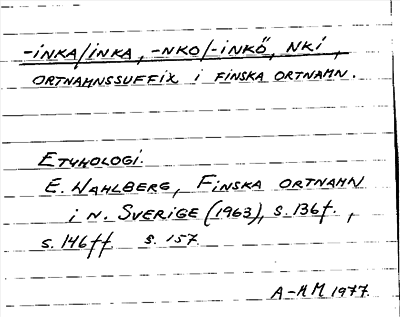 -INKA/INKA, -NKO/-INKÖ, NKI,
ORTNAMNSSUFFIX I FINSKA ORTNAMN.
ETYMOLOGI.
E. WAHLBERG, FINSKA ORTNAMN
I N. SVERIGE (1963), S. 136f.,
S. 146ff S. 157.
A-M M 1977.